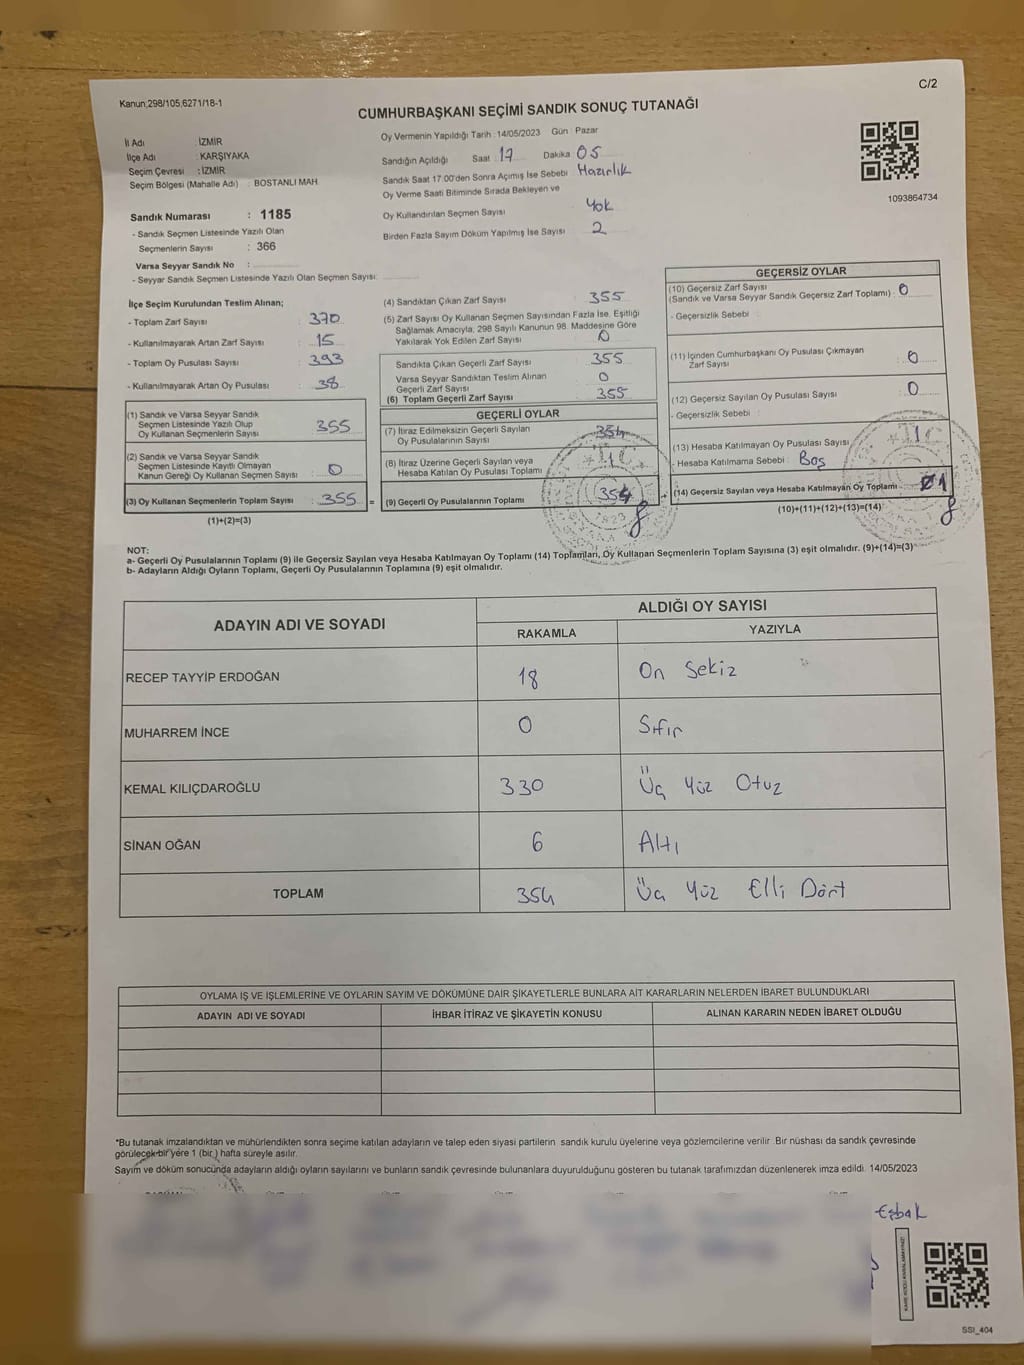 C/2
Kanun;298/105,6271/18-1
CUMHURBAŞKANI SEÇİMİ SANDIK SONUÇ TUTANAĞI
İl Adı : İZMİR
İlçe Adı : KARŞIYAKA
Seçim Çevresi : İZMİR
Seçim Bölgesi (Mahalle Adı) : BOSTANLI MAH.
Sandık Numarası : 1185
- Sandık Seçmen Listesinde Yazılı Olan
Seçmenlerin Sayısı : 366
Varsa Seyyar Sandık No :
- Seyyar Sandık Seçmen Listesinde Yazılı Olan Seçmen Sayısı:
Oy Vermenin Yapıldığı Tarih : 14/05/2023 Gün : Pazar
Sandığın Açıldığı Saat : 17 Dakika 05
Sandık Saat 17:00'den Sonra Açımış İse Sebebi Hazırlık
Oy Verme Saati Bitiminde Sırada Bekleyen ve
Oy Kullandırılan Seçmen Sayısı Yok
Birden Fazla Sayım Döküm Yapılmış İse Sayısı 2
1093864734
İlçe Seçim Kurulundan Teslim Alınan;
- Toplam Zarf Sayısı : 370
- Kullanılmayarak Artan Zarf Sayısı : 15
- Toplam Oy Pusulası Sayısı : 393
- Kullanılmayarak Artan Oy Pusulası : 38
(1) Sandık ve Varsa Seyyar Sandık
Seçmen Listesinde Yazılı Olup
Oy Kullanan Seçmenlerin Sayısı : 355
(2) Sandık ve Varsa Seyyar Sandık
Seçmen Listesinde Kayıtlı Olmayan
Kanun Gereği Oy Kullanan Seçmen Sayısı : 0
(3) Oy Kullanan Seçmenlerin Toplam Sayısı : 355 =
(1)+(2)=(3)
(4) Sandıktan Çıkan Zarf Sayısı : 355
(5) Zarf Sayısı Oy Kullanan Seçmen Sayısından Fazla İse, Eşitliği
Sağlamak Amacıyla, 298 Sayılı Kanunun 98. Maddesine Göre
Yakılarak Yok Edilen Zarf Sayısı : 0
Sandıkta Çıkan Geçerli Zarf Sayısı : 355
Varsa Seyyar Sandıktan Teslim Alınan
Geçerli Zarf Sayısı : 0
(6) Toplam Geçerli Zarf Sayısı : 355
GEÇERLİ OYLAR
(7) İtiraz Edilmeksizin Geçerli Sayılan
Oy Pusulalarının Sayısı : 354
(8) İtiraz Üzerine Geçerli Sayılan veya
Hesaba Katılan Oy Pusulası Toplamı
(9) Geçerli Oy Pusulalarının Toplamı : 354 +
GEÇERSİZ OYLAR
(10) Geçersiz Zarf Sayısı
(Sandık ve Varsa Seyyar Sandık Geçersiz Zarf Toplamı) : 0
- Geçersizlik Sebebi :
(11) İçinden Cumhurbaşkanı Oy Pusulası Çıkmayan
Zarf Sayısı : 0
(12) Geçersiz Sayılan Oy Pusulası Sayısı : 0
- Geçersizlik Sebebi :
(13) Hesaba Katılmayan Oy Pusulası Sayısı
- Hesaba Katılmama Sebebi : Boş
(14) Geçersiz Sayılan veya Hesaba Katılmayan Oy Toplamı : 1
(10)+(11)+(12)+(13)=(14)
NOT:
a- Geçerli Oy Pusulalarının Toplamı (9) ile Geçersiz Sayılan veya Hesaba Katılmayan Oy Toplamı (14) Toplamları, Oy Kullanan Seçmenlerin Toplam Sayısına (3) eşit olmalıdır. (9)+(14)=(3)
b- Adayların Aldığı Oyların Toplamı, Geçerli Oy Pusulalarının Toplamına (9) eşit olmalıdır.
ADAYIN ADI VE SOYADI
ALDIĞI OY SAYISI
RAKAMLA YAZIYLA
RECEP TAYYİP ERDOĞAN 18 On Sekiz
MUHARREM İNCE 0 Sıfır
KEMAL KILIÇDAROĞLU 330 Üç Yüz Otuz
SİNAN OĞAN 6 Altı
TOPLAM 354 Üç Yüz Elli Dört
OYLAMA İŞ VE İŞLEMLERİNE VE OYLARIN SAYIM VE DÖKÜMÜNE DAİR ŞİKAYETLERLE BUNLARA AİT KARARLARIN NELERDEN İBARET BULUNDUKLARI
ADAYIN ADI VE SOYADI İHBAR İTİRAZ VE ŞİKAYETİN KONUSU ALINAN KARARIN NEDEN İBARET OLDUĞU
*Bu tutanak imzalandıktan ve mühürlendikten sonra seçime katılan adayların ve talep eden siyasi partilerin sandık kurulu üyelerine veya gözlemcilerine verilir. Bir nüshası da sandık çevresinde
görülecek bir yere 1 (bir ) hafta süreyle asılır.
Sayım ve döküm sonucunda adayların aldığı oyların sayılarını ve bunların sandık çevresinde bulunanlara duyurulduğunu gösteren bu tutanak tarafımızdan düzenlenerek imza edildi. 14/05/2023
Eşbak
SSI_404